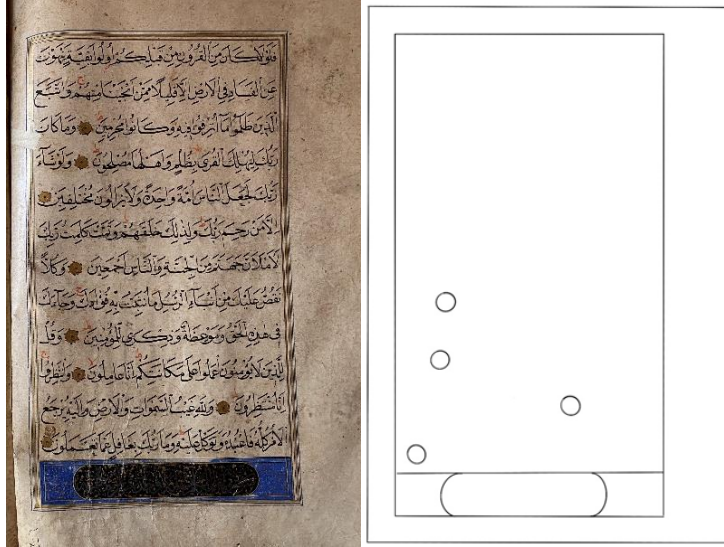 فلولا كان من القرون من قبلكم اولوا بقية ينهون
عن الفساد في الارض الا قليلا ممن انجينا منهم واتبع
الذين ظلموا ما اترفوا فيه وكانوا مجرمين وما كان
ربك ليهلك القرى بظلم واهلها مصلحون ولو شاء
ربك لجعل الناس امة واحدة ولا يزالون مختلفين
الا من رحم ربك ولذلك خلقهم وتمت كلمت ربك
لاملان جهنم من الجنة والناس اجمعين وكلا
نقص عليك من انباء الرسل ما نثبت به فؤادك وجاءك
في هذه الحق وموعظة وذكرى للمؤمنين وقل
للذين لا يؤمنون اعملوا على مكانتكم انا عاملون وانتظروا
انا منتظرون ولله غيب السموات والارض واليه يرجع
الامر كله فاعبده وتوكل عليه وما ربك بغافل عما تعملون